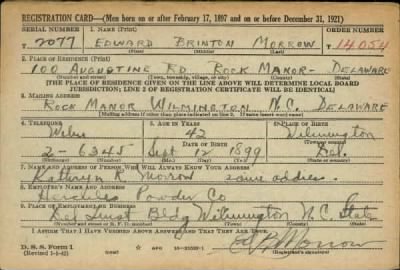 REGISTRATION CARD—(Men born on or after February 17, 1897 and on or before December 31, 1921)
SERIAL NUMBER 1. NAME (Print) ORDER NUMBER
2077 EDWARD BRINTON MORROW 14054
(First) (Middle) (Last)
2. PLACE OF RESIDENCE (Print)
100 AUGUSTINE RD. ROCK MANOR- DELAWARE
(Number and street) (Town, township, village, or city) (County) (State)
[THE PLACE OF RESIDENCE GIVEN ON THE LINE ABOVE WILL DETERMINE LOCAL BOARD
JURISDICTION; LINE 2 OF REGISTRATION CERTIFICATE WILL BE IDENTICAL]
3. MAILING ADDRESS
ROCK MANOR WILMINGTON N.C. DELAWARE
[Mailing address if other than place indicated on line 2. If same insert word same]
4. TELEPHONE 5. AGE IN YEARS 6. PLACE OF BIRTH
Wilm 42 Wilmington
DATE OF BIRTH
2-6345 Sept 12 1899 Del.
(Exchange) (Number) (Mo.) (Day) (Yr.) (State or country)
7. NAME AND ADDRESS OF PERSON WHO WILL ALWAYS KNOW YOUR ADDRESS
Kathryn R. Morrow same address.
8. EMPLOYER'S NAME AND ADDRESS
Hercules Powder Co
9. PLACE OF EMPLOYMENT OR BUSINESS
Del Trust Bldg Wilmington N.C. State
(Number and street or R. F. D. number) (Town) (County) (State)
I AFFIRM THAT I HAVE VERIFIED ABOVE ANSWERS AND THAT THEY ARE TRUE.
D. S. S. Form 1
(Revised 1-1-42) (over) GPO
E B Morrow
(Registrant's signature)